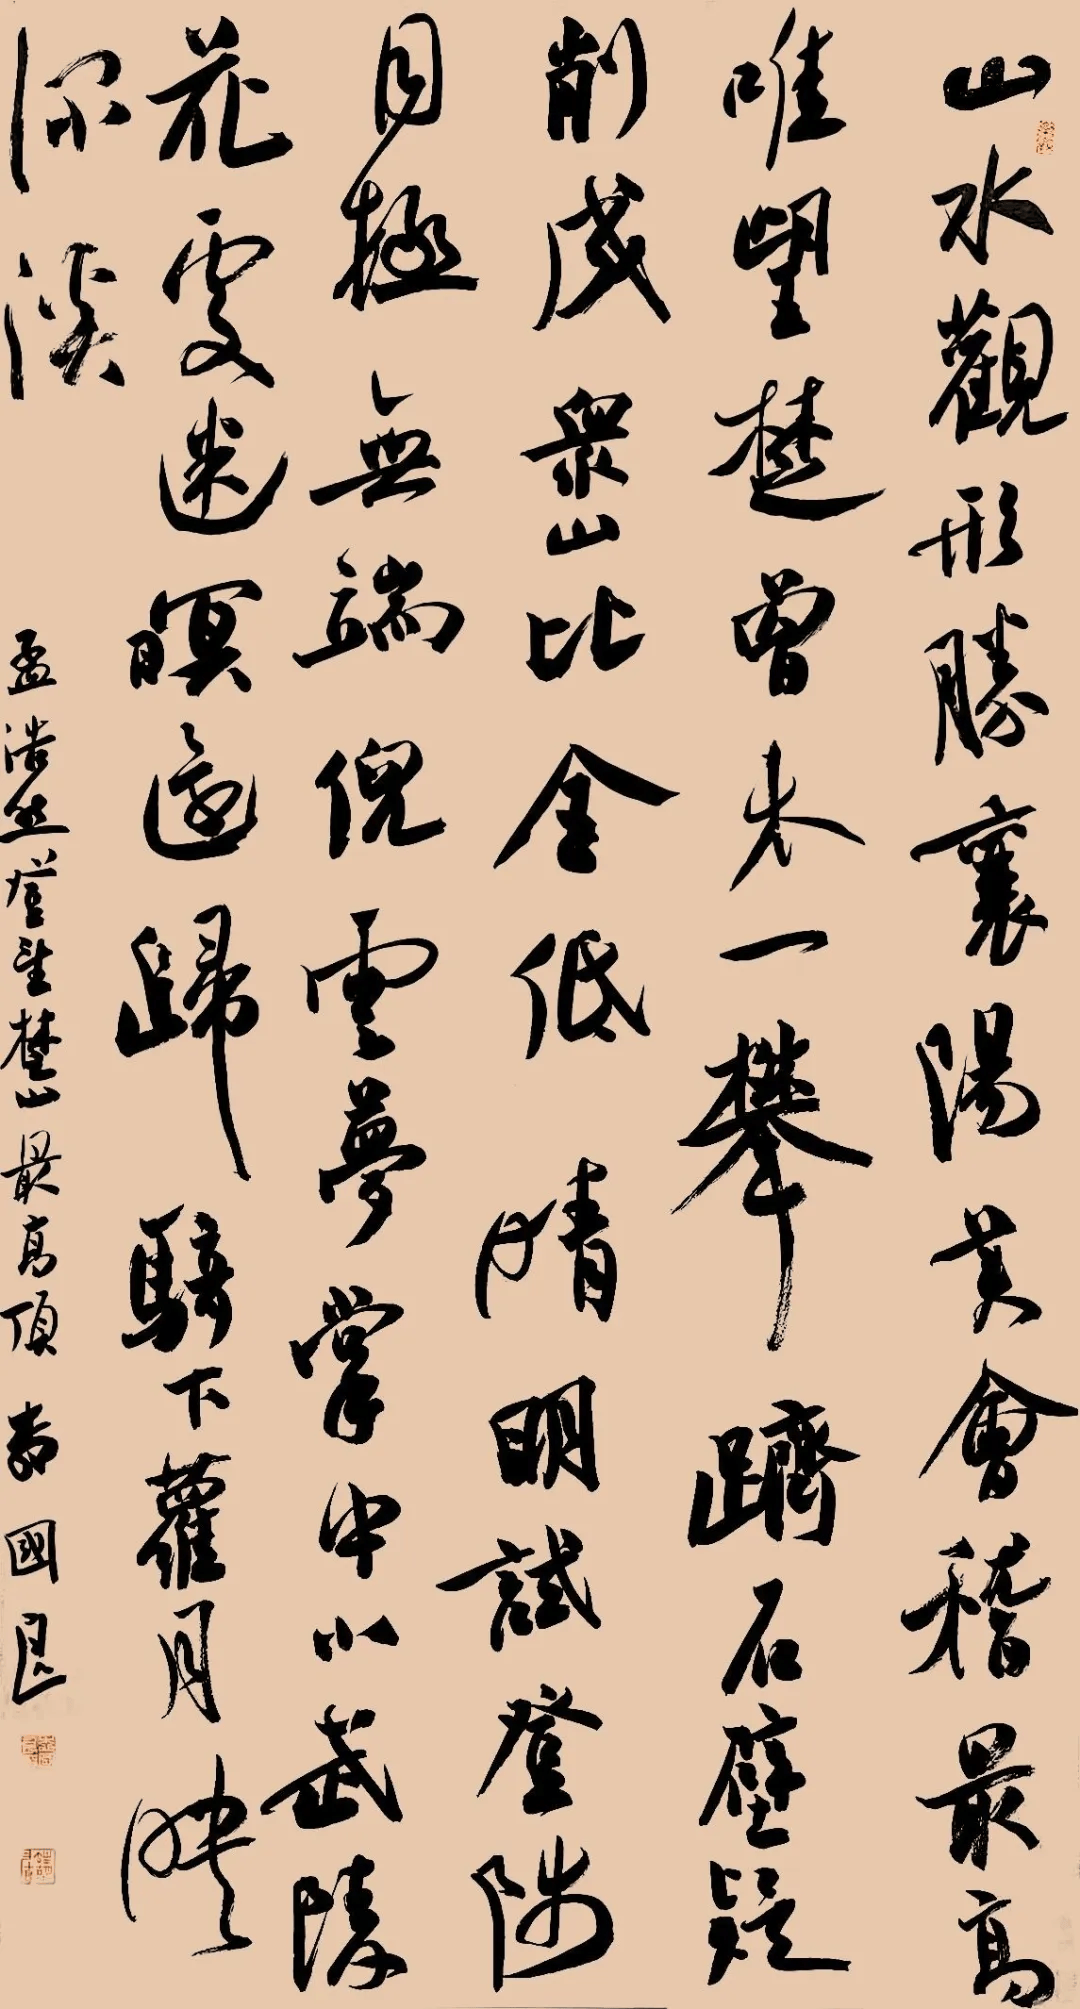 山水觀形勝襄陽美會稽最高
唯望楚曾未一攀躋石壁疑
削成衆山比全低晴明試登陟
目極無端倪雲夢掌中小武陵
花處迷暝還歸騎下蘿月映
深溪
孟浩然登望楚山最高頂 國良